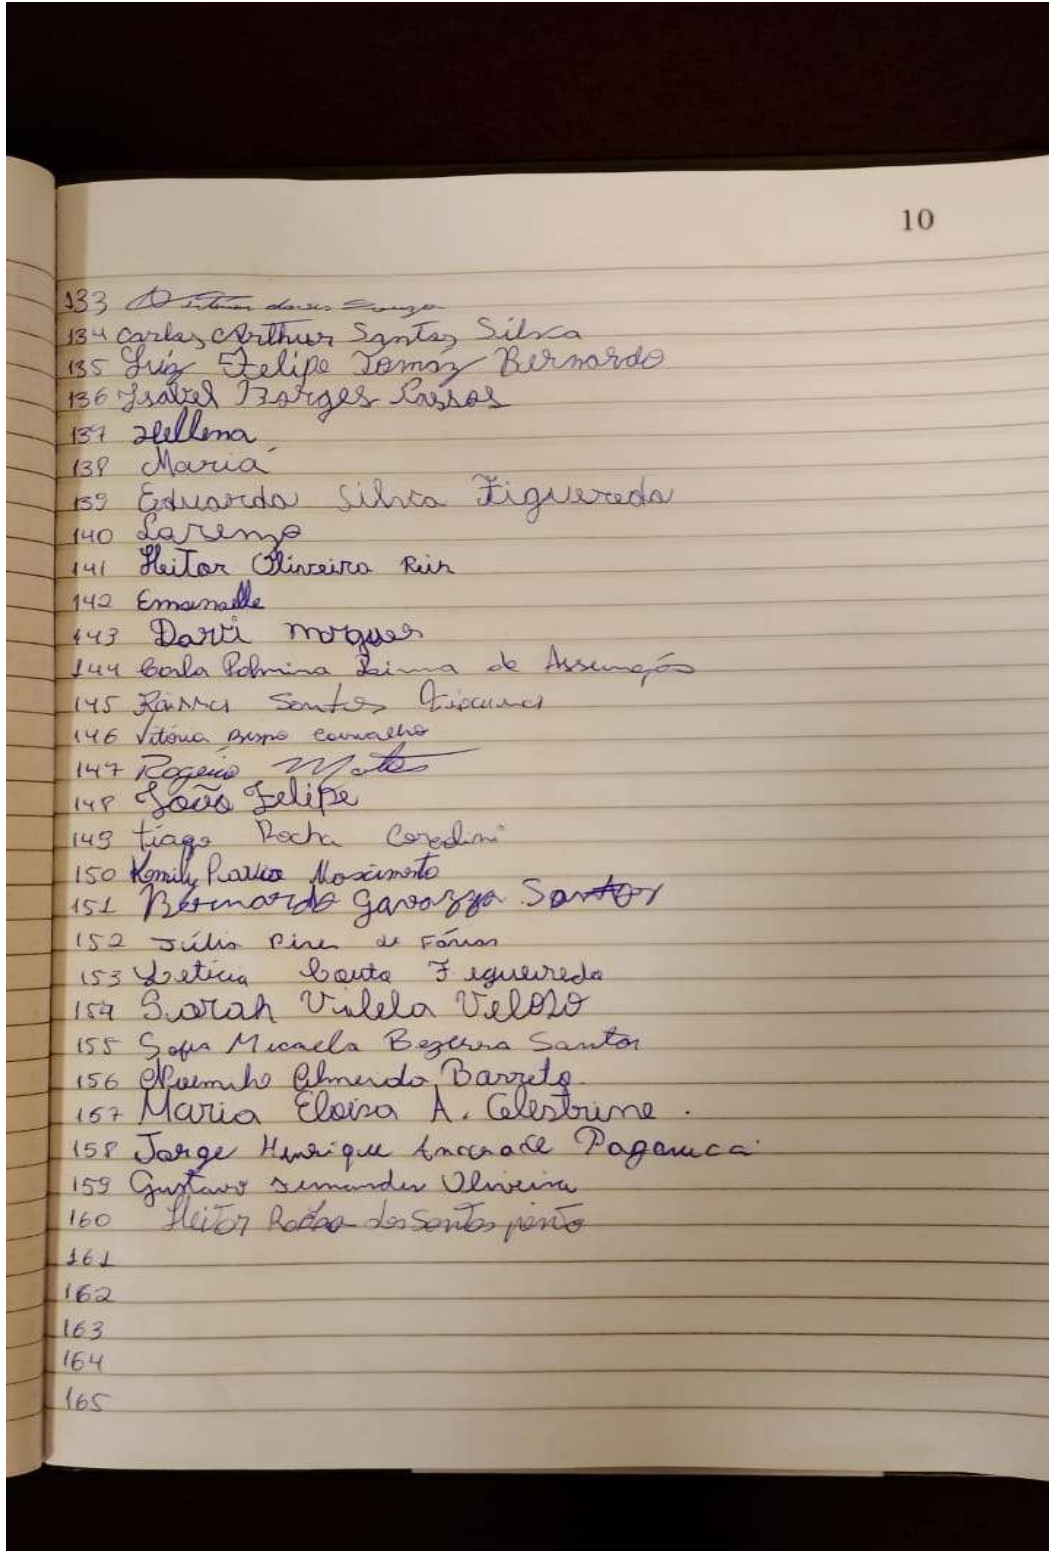 10
133
134 Carlos Arthur Santos Silva
135 Luíz Felipe Tomáz Bernardo
136 Isabel Borges Passos
137 Hellena
138 Maria
139 Eduarda Silva Figueredo
140 Lorenzo
141 Heitor Oliveira
142 Emanuelle
143 Davi
144 Carla Palmina Lima de Assunção
145 Santos
146 Vitória Bispo Carvalho
147 Rogério Matos
148 João Felipe
149 tiago Rocha
150 Nascimento
151 Bernardo Gavazza Santos
152 Júlia Pires de Farias
153 Letícia Couto Figueiredo
154 Sarah Vilela Veloso
155 Sofia Micaela Bezerra Santos
156 Almeida Barreto
157 Maria Eloisa A. Celestrine.
158 Jorge Henrique Andrade
159 Gustavo Oliveira
160 Heitor Rocha dos Santos
161
162
163
164
165